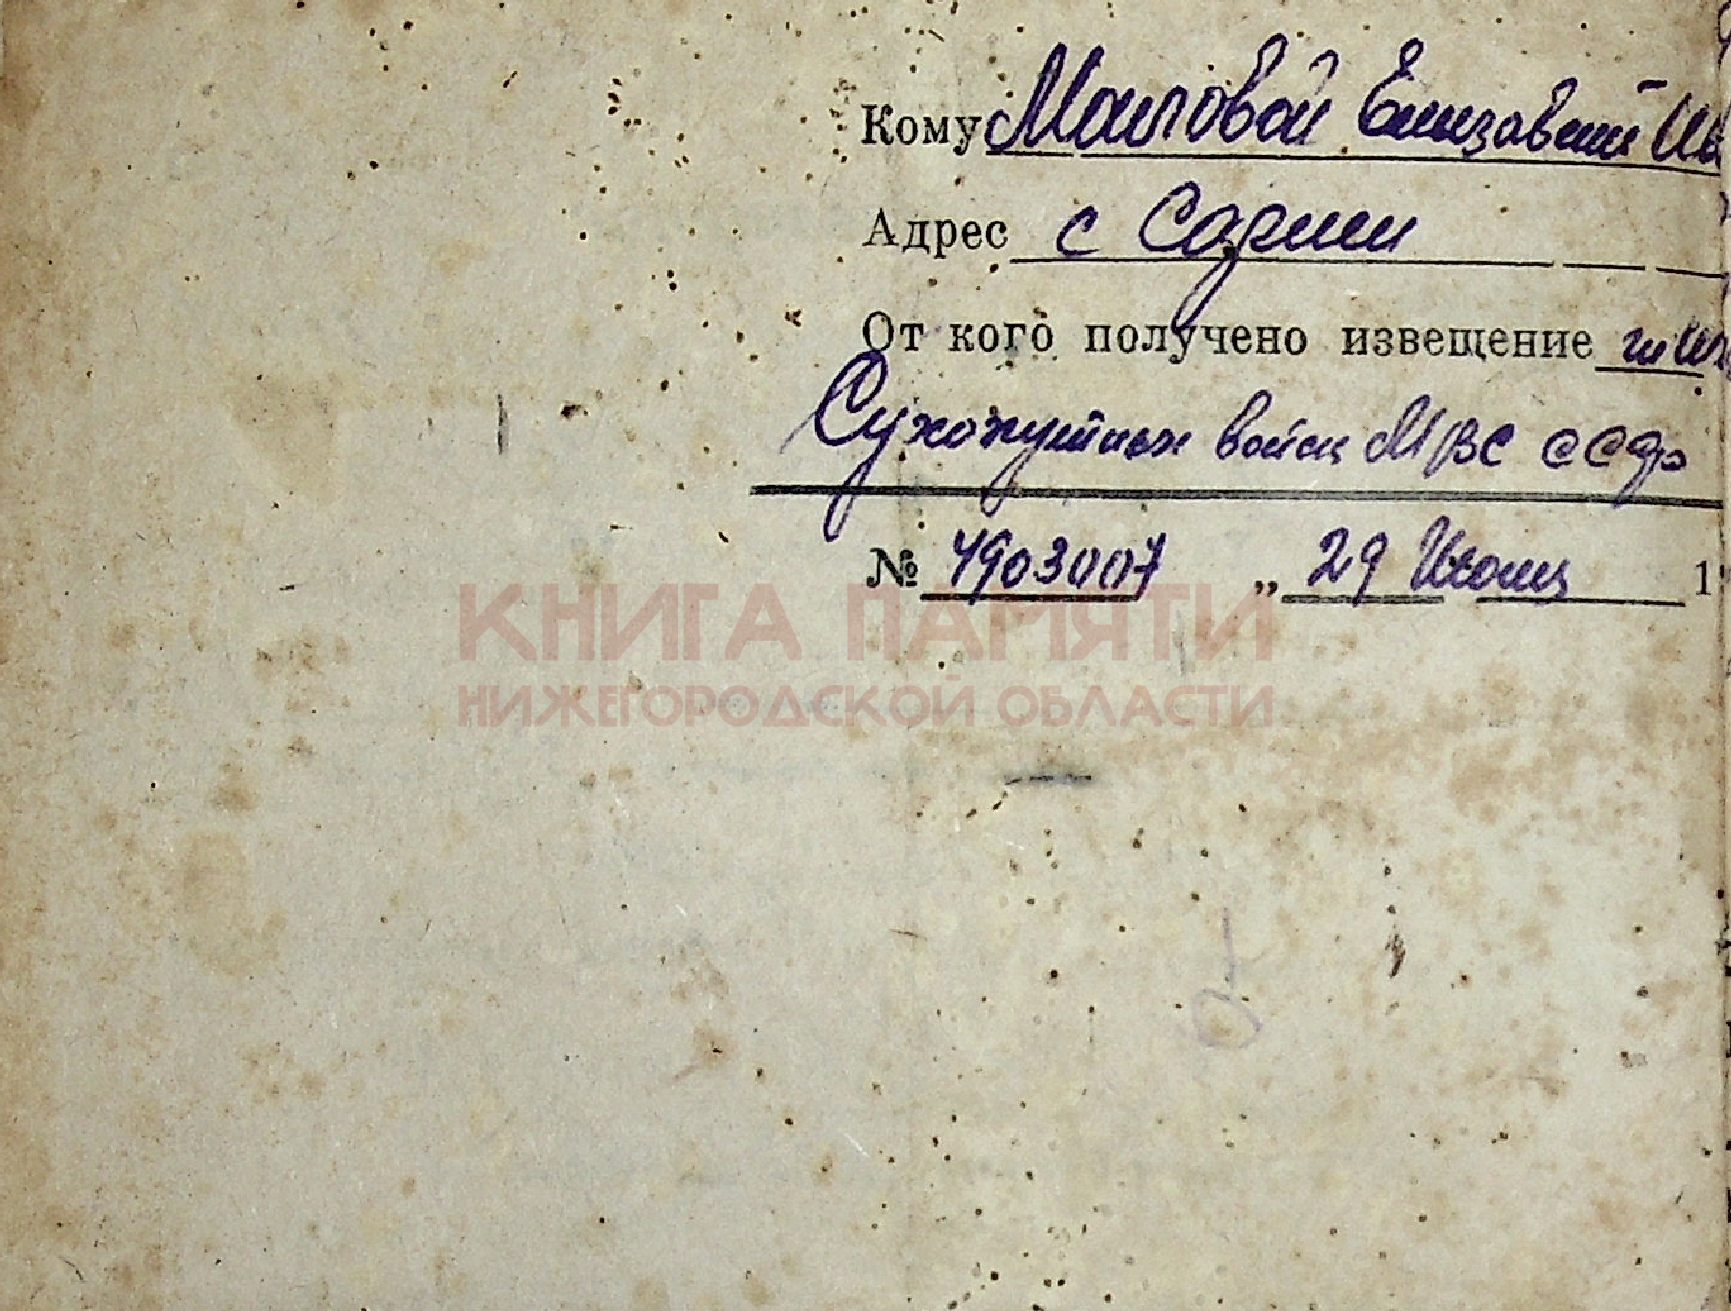 Кому Маиловой Елизавете Ив
Адрес с Сарлеи
От кого получено извещение
Сухопутных войск МВС СССР
№ 4903007 „ 29 Июля 1
КНИГА ПАМЯТИ
НИЖЕГОРОДСКОЙ ОБЛАСТИ